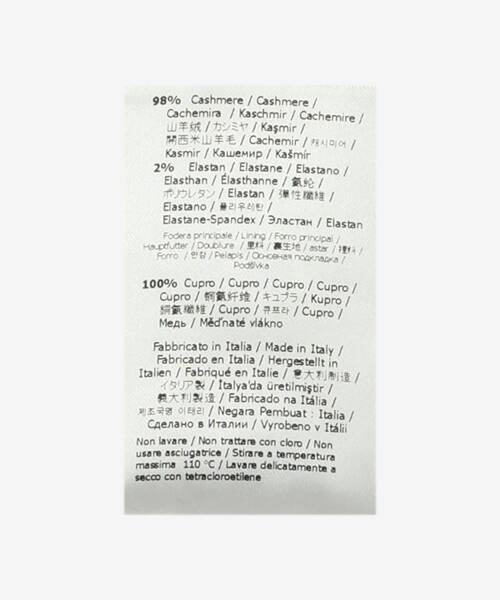 98% Cashmere / Cashmere /
Cachemira / Kaschmir / Cachemire /
山羊絨 / カシミヤ / Kaşmir /
開西米山羊毛 / Cachemir / 캐시미어 /
Kasmir / Кашемир / Kašmír
2% Elastan / Elastane / Elastano /
Elasthan / Élasthanne / 氨纶 /
ポリウレタン / Elastan / 彈性纖維 /
Elastano / 폴리우레탄 /
Elastane-Spandex / Эластан / Elastan
Fodera principale / Lining / Forro principal /
Hauptfutter / Doublure / 里料 / 裏生地 / astar / 裡料 /
Forro / 안감 / Pelapis / Основная подкладка /
Podšívka
100% Cupro / Cupro / Cupro / Cupro /
Cupro / 铜氨纤维 / キュプラ / Kupro /
銅氨纖維 / Cupro / 큐프라 / Cupro /
Медь / Měďnaté vlákno
Fabbricato in Italia / Made in Italy /
Fabricado en Italia / Hergestellt in
Italien / Fabriqué en Italie / 意大利制造 /
イタリア製 / İtalya'da üretilmiştir /
義大利製造 / Fabricado na Itália /
제조국명 이태리 / Negara Pembuat : Italia /
Сделано в Италии / Vyrobeno v Itálii
Non lavare / Non trattare con cloro / Non
usare asciugatrice / Stirare a temperatura
massima 110 °C / Lavare delicatamente a
secco con tetracloroetilene